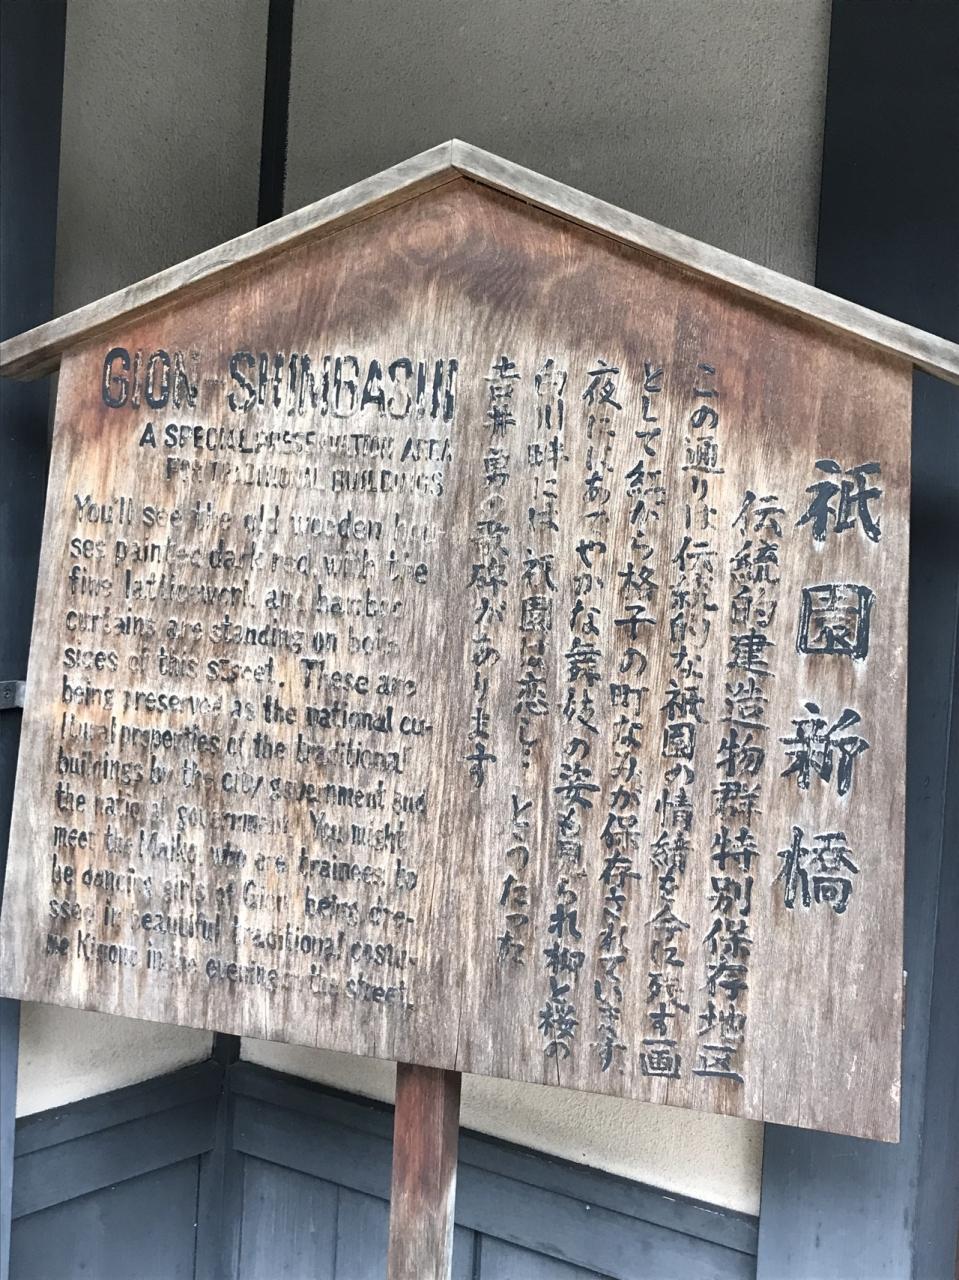 祇園新橋
伝統的建造物群特別保存地区
この通りは伝統的な祇園の情緒を今に残す一画
として紅がら格子の町なみが保存されています
夜にはあでやかな舞妓の姿も見られ柳と桜の
白川畔には祇園は恋し とうたった
吉井勇の歌碑があります
GION SHINBASHI
A SPECIAL PRESERVATION AREA
FOR TRADITIONAL BUILDINGS
You'll see the old wooden hou-
ses painted dark red with the
fine latticework and bamboo
curtains are standing on both
sides of this street. These are
being preserved as the national cu-
ltural properties of the traditional
buildings by the city government and
the national government. You might
meet the Maiko, who are trainees to
be dancing girls of Gion, being dre-
ssed in beautiful traditional costu-
me Kimono in the evening on this street.